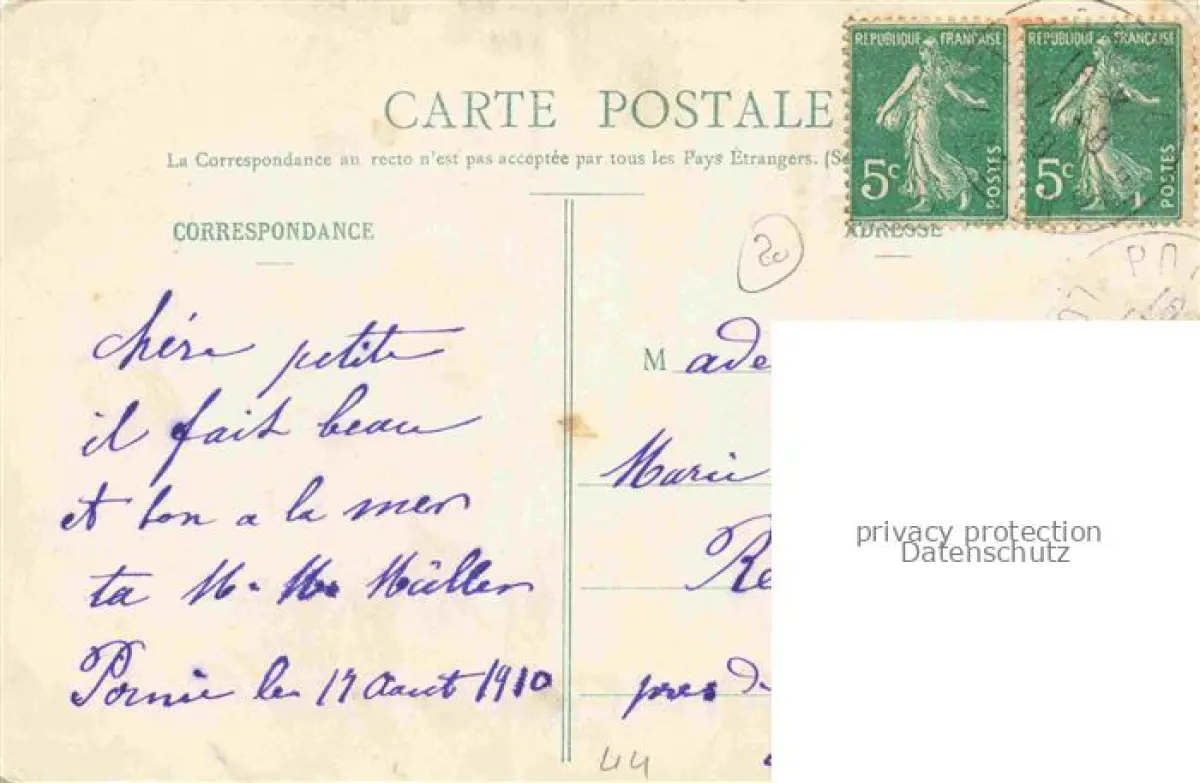 CARTE POSTALE
La Correspondance au recto n'est pas acceptée par tous les Pays Étrangers. (Se
REPUBLIQUE FRANÇAISE
5c POSTES
REPUBLIQUE FRANÇAISE
5c POSTES
CORRESPONDANCE
ADRESSE
20
chére petite
il fait beau
et bon a la mer
ta M. Müller
Pornic le 17 Aout 1910
M ade
Marie
Re
pres de
44
privacy protection
Datenschutz